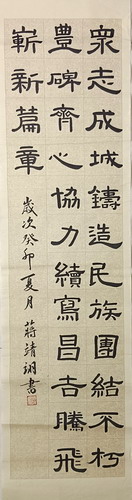 眾志成城鑄造民族團結不朽
豐碑齊心協力續寫昌吉騰飛
嶄新篇章
歲次癸卯夏月 蔣靖翊書